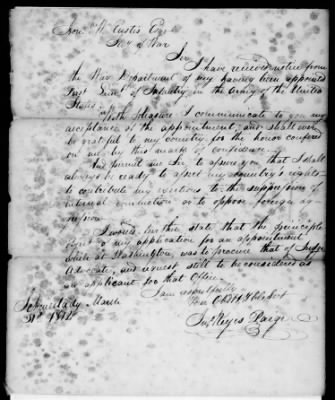 Hon. W. Eustis Esqr
Secy of War
Sir
I have received notice from
the War Department of my having been appointed
first Lieut. of Infantry in the Army of the United
States.
With pleasure I communicate to you my
acceptance of the appointment, and shall ever
be grateful to my country, for the honor conferred
on me by this mark of confidence.
And permit me Sir, to assure you that I shall
always be ready to assert my country's rights—
to contribute my exertions to the suppression of
internal convulsion or to oppose foreign ag-
gression.
I would further state that the principle
object of my application for an appointment
while at Washington, was to procure that of Judge
Advocate, and request still to be considered as
an applicant for that Office.
I am respectfully
Your Obt Hble Sert
Jno Keyes Paige
Schenectady March
31st 1812